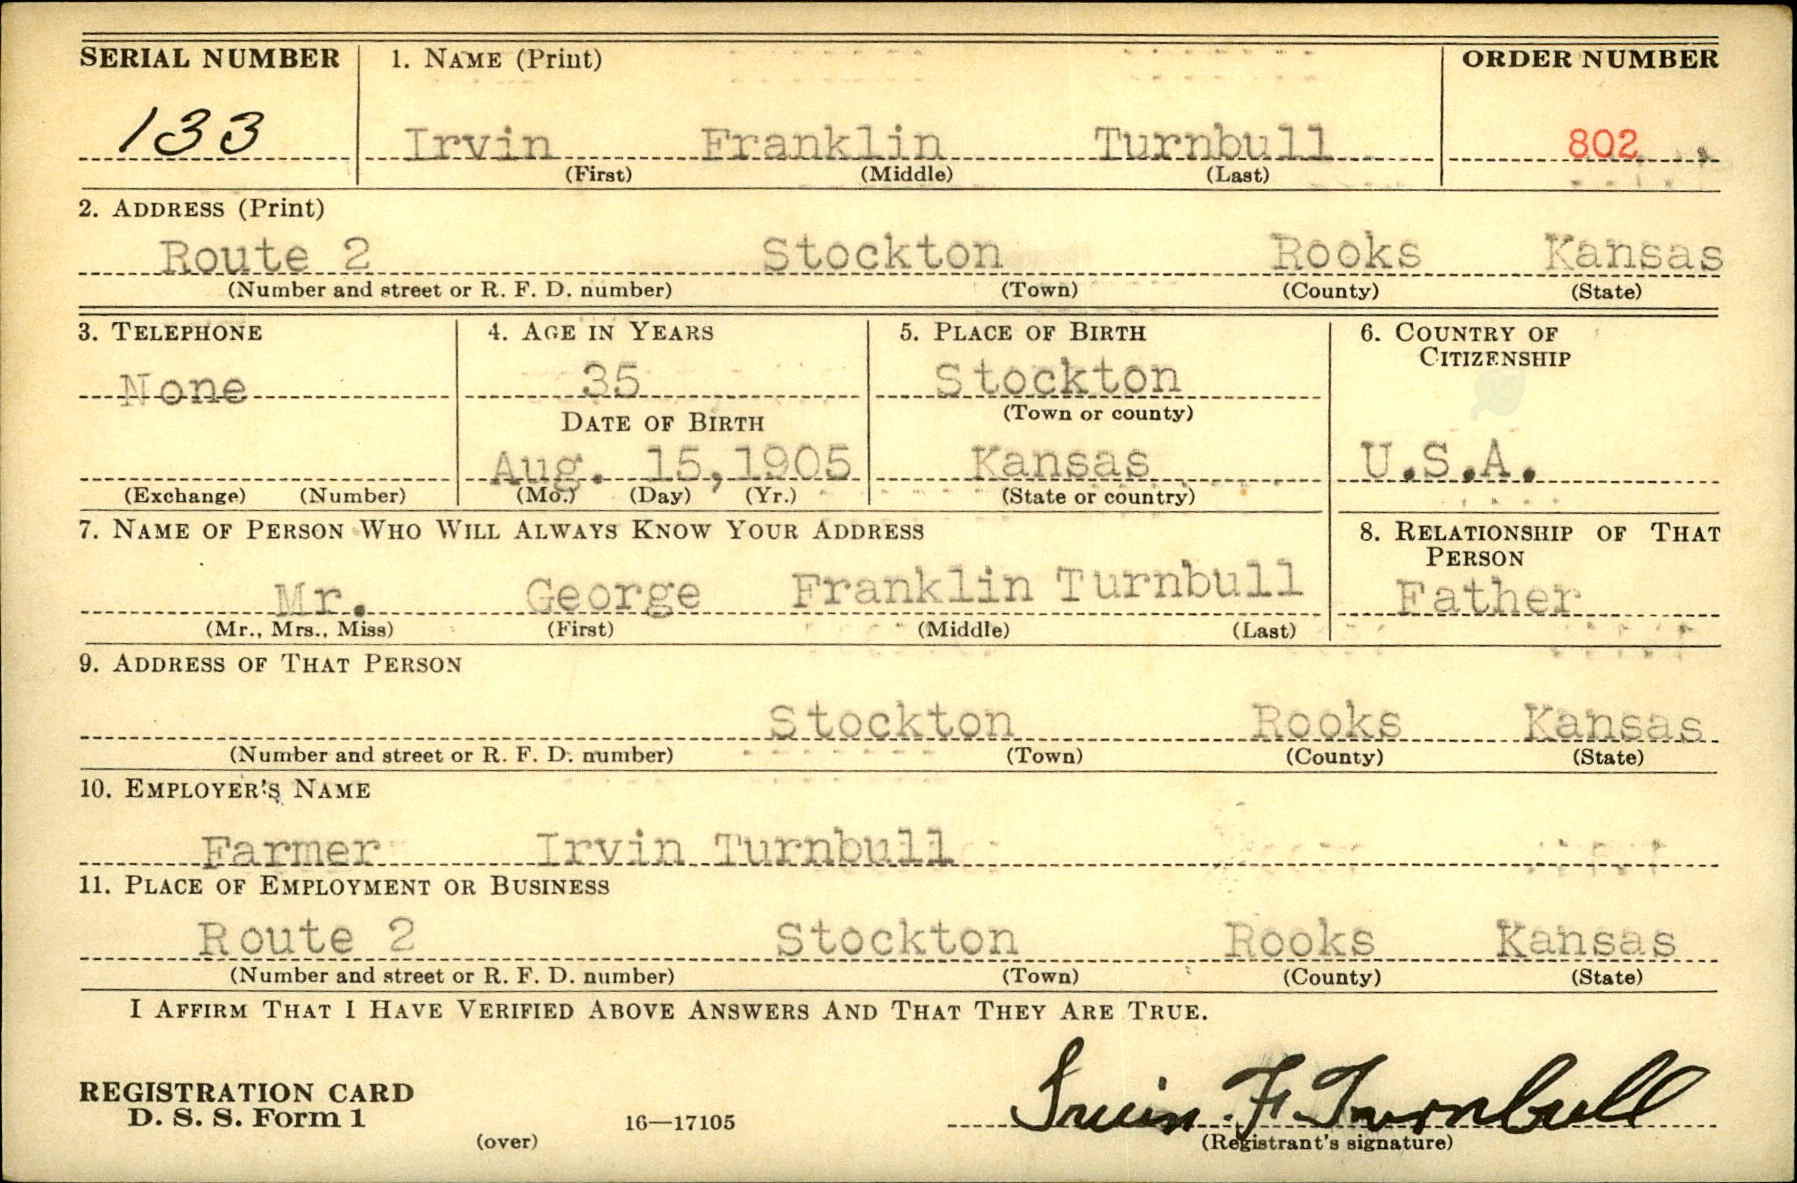 SERIAL NUMBER 1. NAME (Print) ORDER NUMBER
133 Irvin Franklin Turnbull 802
(First) (Middle) (Last)
2. ADDRESS (Print)
Route 2 Stockton Rooks Kansas
(Number and street or R. F. D. number) (Town) (County) (State)
3. TELEPHONE 4. AGE IN YEARS 5. PLACE OF BIRTH 6. COUNTRY OF
CITIZENSHIP
None 35 Stockton
DATE OF BIRTH (Town or county)
Aug. 15, 1905 Kansas U.S.A.
(Exchange) (Number) (Mo.) (Day) (Yr.) (State or country)
7. NAME OF PERSON WHO WILL ALWAYS KNOW YOUR ADDRESS 8. RELATIONSHIP OF THAT
PERSON
Mr. George Franklin Turnbull Father
(Mr., Mrs., Miss) (First) (Middle) (Last)
9. ADDRESS OF THAT PERSON
Stockton Rooks Kansas
(Number and street or R. F. D. number) (Town) (County) (State)
10. EMPLOYER'S NAME
Farmer Irvin Turnbull
11. PLACE OF EMPLOYMENT OR BUSINESS
Route 2 Stockton Rooks Kansas
(Number and street or R. F. D. number) (Town) (County) (State)
I AFFIRM THAT I HAVE VERIFIED ABOVE ANSWERS AND THAT THEY ARE TRUE.
Irvin F. Turnbull
REGISTRATION CARD
D. S. S. Form 1 16—17105
(over) (Registrant's signature)